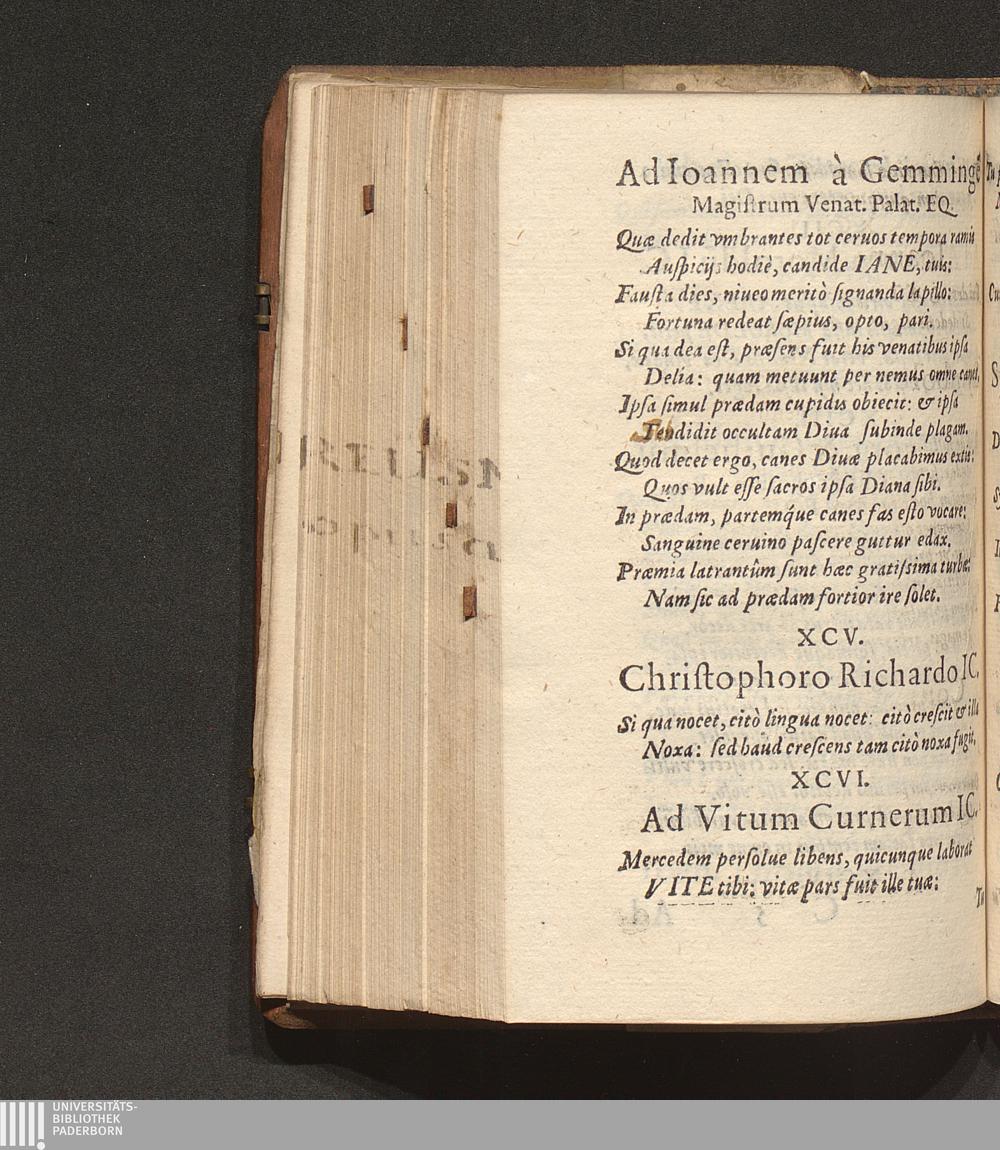 Ad Ioannem à Gemmingẽ
Magiſtrum Venat. Palat. EQ.
Quæ dedit vmbrantes tot ceruos tempora ramis
Auſpicijs hodiè, candide IANE, tuis:
Fauſta dies, niueo meritò ſignanda lapillo:
Fortuna redeat ſæpius, opto, pari.
Si qua dea eſt, præſens fuit his venatibus ipſa
Delia: quam metuunt per nemus omne canes,
Ipſa ſimul prædam cupidis obiecit: & ipſa
Tendidit occultam Diua ſubinde plagam.
Quod decet ergo, canes Diuæ placabimus extis:
Quos vult eſſe ſacros ipſa Diana ſibi.
In prædam, partemq́ue canes fas eſto vocare:
Sanguine ceruino paſcere guttur edax.
Præmia latrantûm ſunt hæc gratiſsima turbæ:
Nam ſic ad prædam fortior ire ſolet.
XCV.
Chriſtophoro Richardo IC.
Si qua nocet, citò lingua nocet: citò creſcit & illa
Noxa: ſed haùd creſcens tam citò noxa fugit.
XCVI.
Ad Vitum Curnerum IC.
Mercedem perſolue libens, quicunque laborat
VITE tibi: vitæ pars fuit ille tuæ:
UNIVERSITÄTS-
BIBLIOTHEK
PADERBORN